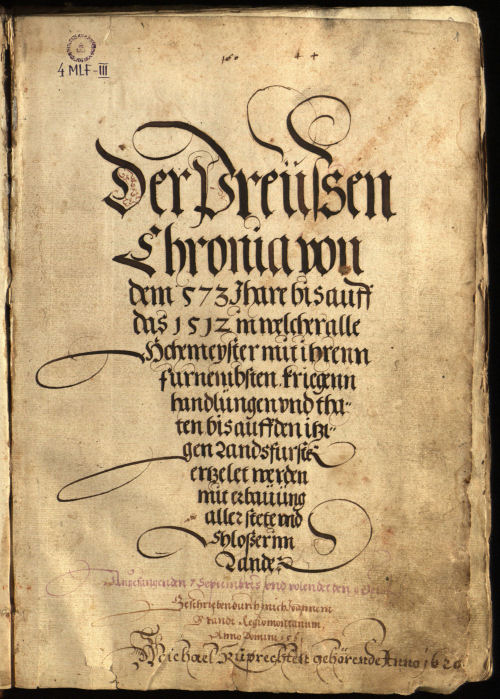 4 MLF-III
Der Preüssen
Chronica von
dem 573 Jhare bis auff
das 1512 in welcher alle
Hohemeyster mit ihrenn
furnembsten kriegenn
handlüngen vnd tha-
ten bis auff den itzi-
gen Landsfurste
ertzelet werden
mit erbauüng
aller stete vnd
schloßer im
Lande
Angefangen den 7 Septembris vnd volendet den
Beschrieben durch mich
Brandt Regiomontanum,
Anno Domini
Michael Ruprechtett gehörende Anno 1620